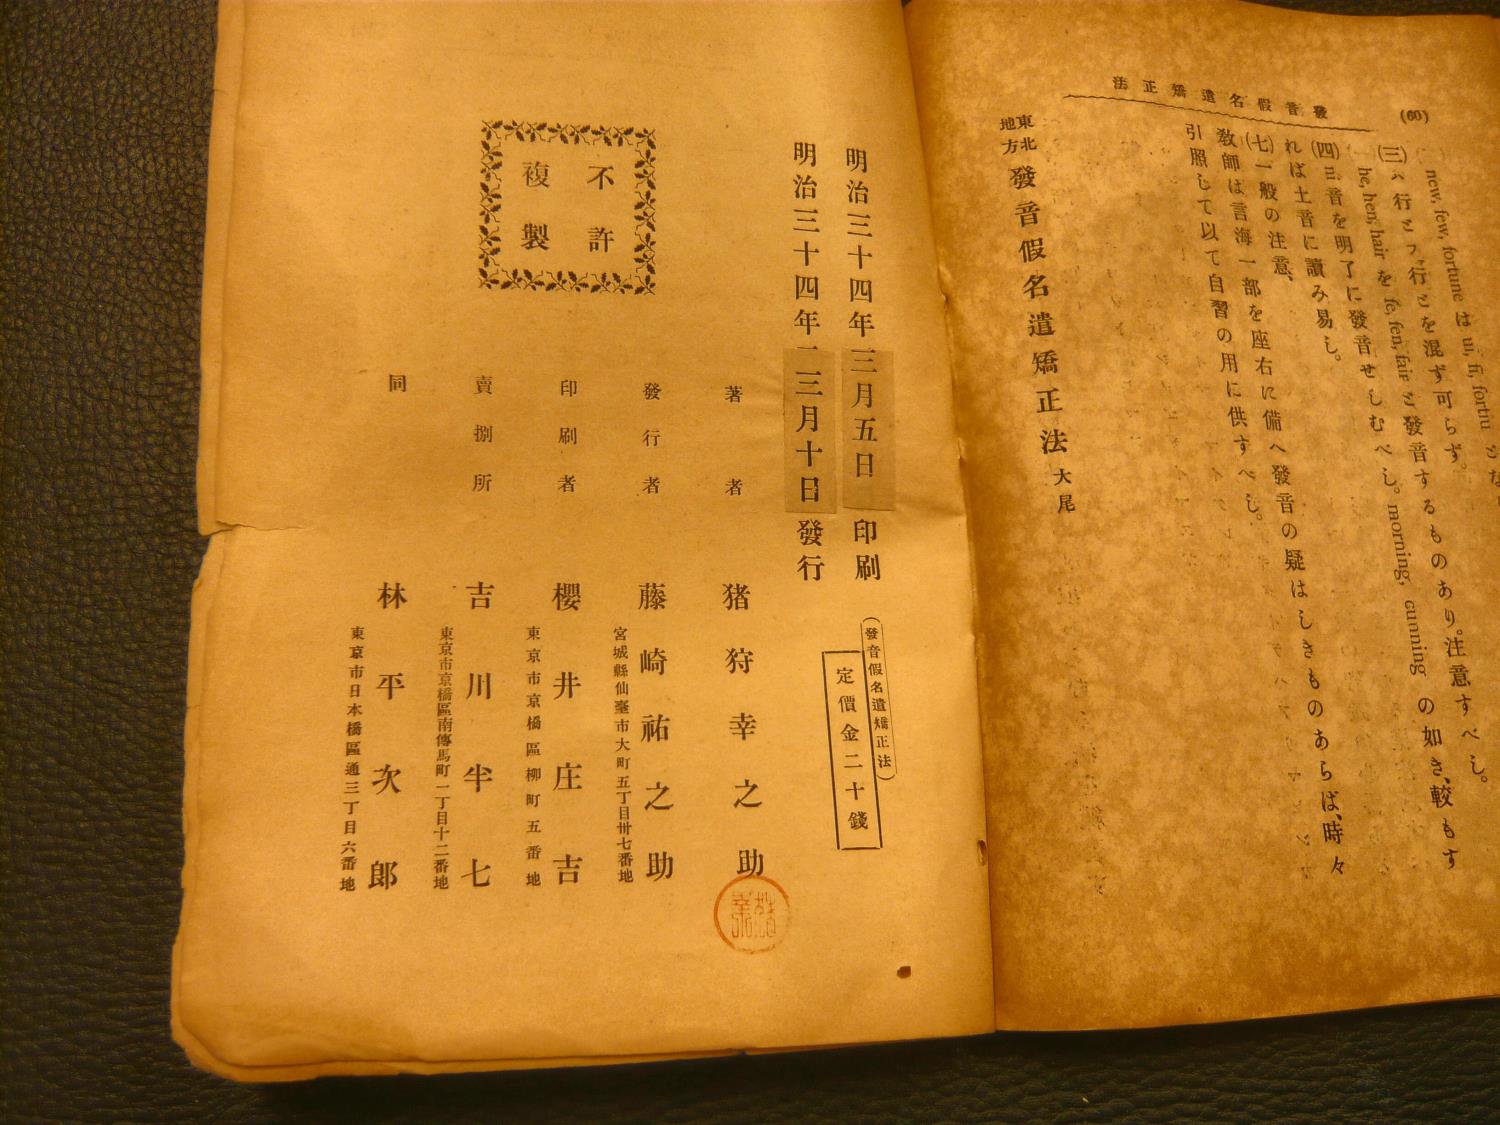 (60)
發音假名遣矯正法
new, few, fortune は ui, fi, fortiu とな
(三)ハ行とフ、行とを混ず可らず。
he, hen, hair を fe, fen, fair と發音するものあり。注意すべし。
(四)ng音を明了に發音せしむべし。morning, cunning の如き、較もす
れば土音に讀み易し。
(七)一般の注意、
敎師は言海一部を座右に備へ發音の疑はしきものあらば、時々
引照して以て自習の用に供すべし。
東北地方 發音假名遣矯正法 大尾
明治三十四年三月五日印刷
明治三十四年三月十日發行
(發音假名遣矯正法)
定價金二十錢
不許
複製
著者 猪狩幸之助
發行者 藤崎祐之助
宮城縣仙臺市大町五丁目卅七番地
印刷者 櫻井庄吉
東京市京橋區柳町五番地
賣捌所 吉川半七
東京市京橋區南傳馬町一丁目十二番地
同 林平次郎
東京市日本橋區通三丁目六番地